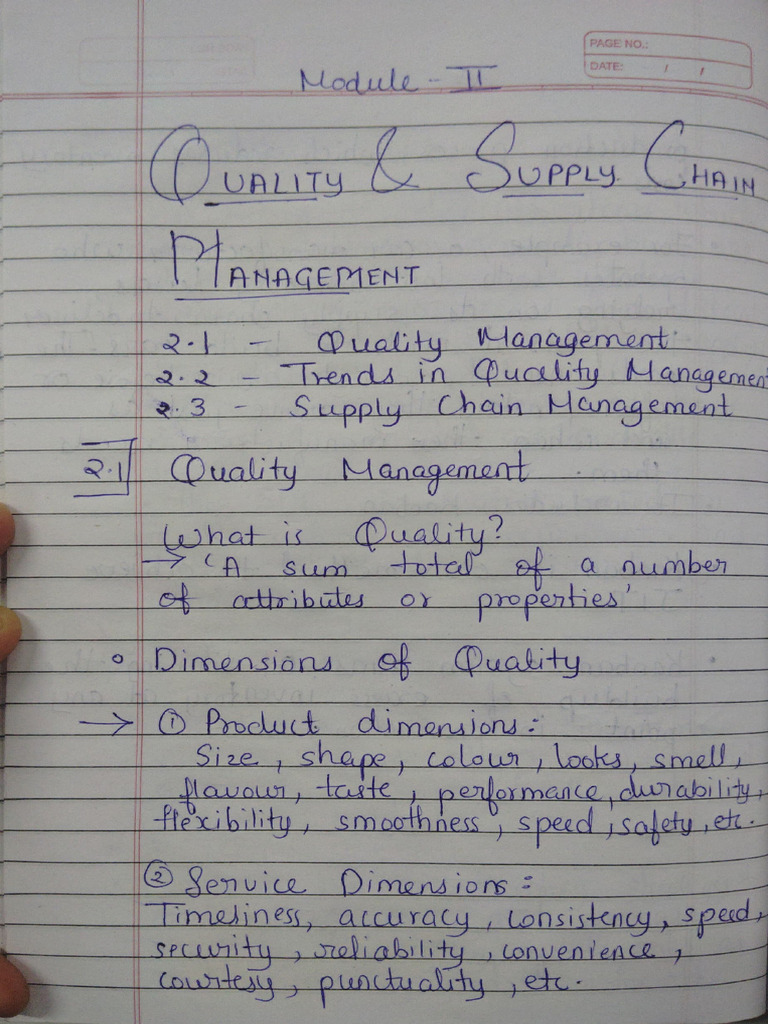 PAGE NO.:
DATE: / /
Module - II
QUALITY & SUPPLY CHAIN
MANAGEMENT
2.1 - Quality Management
2.2 - Trends in Quality Management
2.3 - Supply Chain Management
2.1 Quality Management
What is Quality?
→ 'A sum total of a number
of attributes or properties'
∘ Dimensions of Quality
→ ① Product dimensions:
Size, shape, colour, looks, smell,
flavour, taste, performance, durability,
flexibility, smoothness, speed, safety, etc.
② Service Dimensions:
Timeliness, accuracy, consistency, speed,
security, reliability, convenience,
courtesy, punctuality, etc.